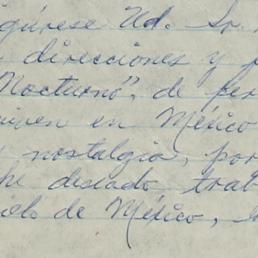 igúrese Ud. Sr.
direcciones y
Nocturno", de per
iven en México
nostalgia, por
he deseado trab
ielo de México,